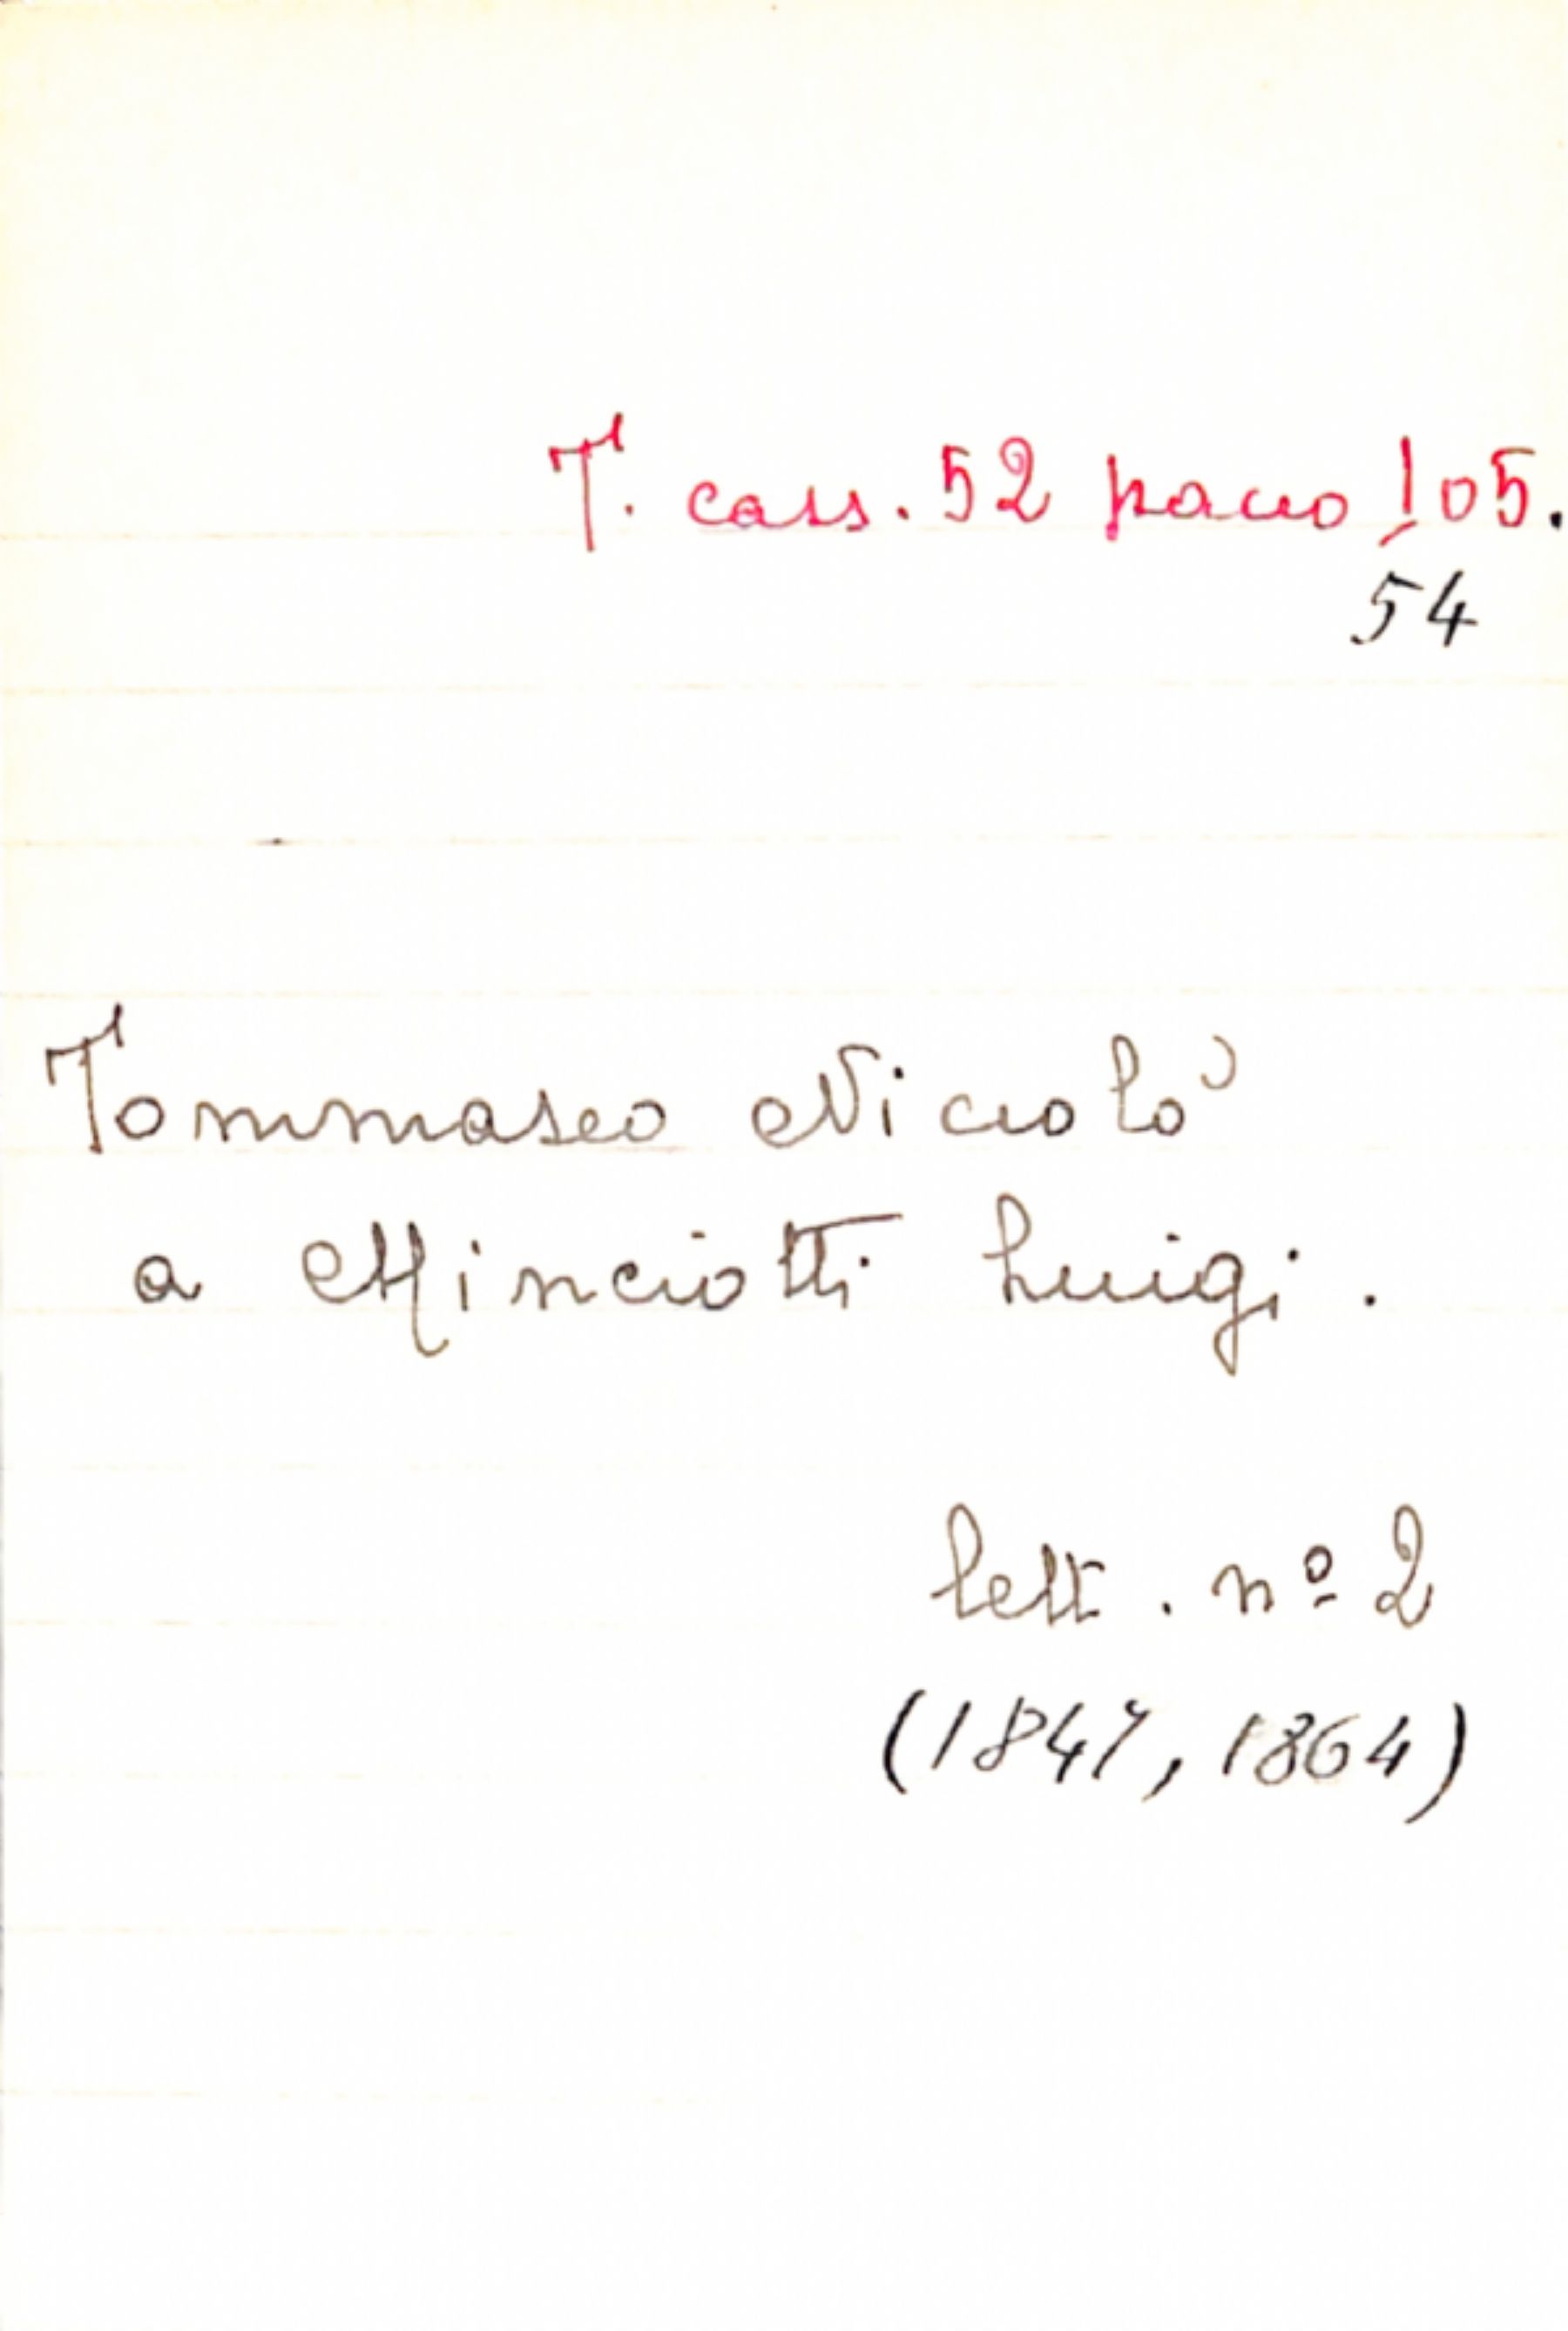 T. cass. 52 pacco 105.
54
Tommaseo Niccolò
a Minciotti Luigi.
lett. nº 2
(1847, 1864)